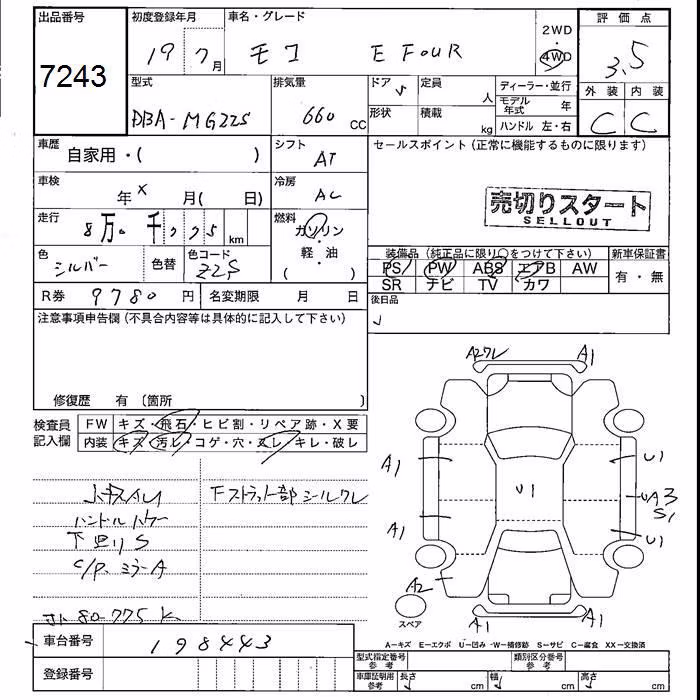 出品番号
7243
初度登録年月
19 7月
車名・グレード
モコ E FOUR
2WD
4WD
評価点
3.5
外装 内装
C C
型式
DBA-MG22S
排気量
660 CC
ドア 5
形状
定員 人
積載 kg
ディーラー・並行
モデル年式 年
ハンドル 左・右
車歴
自家用・( )
シフト
AT
セールスポイント(正常に機能するものに限ります)
車検
年 X 月( 日)
冷房
AC
売切りスタート
SELLOUT
走行
8万0千775 km
燃料
ガソリン
・
軽・油
( )
色
シルバー
色替
色コード
Z2S
装備品(純正品に限り○をつけて下さい)
新車保証書
PS PW ABS エアB AW
SR ナビ TV カワ
有・無
R券 9780円
名変期限 月 日
後日品
注意事項申告欄(不具合内容等は具体的に記入して下さい)
修復歴 有(箇所 )
検査員記入欄
FW キズ・飛石・ヒビ割・リペア跡・X要
内装 キズ・汚レ・コゲ・穴・スレ・キレ・破レ
ハンドル
下廻りS
C/P、ミラーA
Fストラット部シルワレ
80-775K
A2ワレ
A1
A1
U1
U1
UA3
S1
A1
U1
A2
A1
A1
スペア
A-キズ E-エクボ U-凹み W-補修跡 S-サビ C-腐食 XX-交換済
車台番号
198443
登録番号
型式指定番号
参考
類別区分番号
参考
車庫証明用
参考
長さ cm
幅 cm
高さ cm